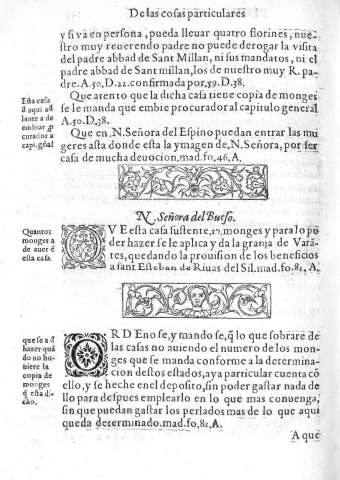 De las cosas particulares
y si va en persona, pueda lleuar quatro florines, nue-
stro muy reuerendo padre no puede derogar la visita
del padre abbad de Sant Millan, ni sus mandatos, ni el
padre abbad de Sant millan, los de nuestro muy R. pa-
dre. A.50. D.22. confirmada por, 59. D.38.
Esta casa
d aqui ad
lante a de
embiar p
curador a
capi. gñal
Que atento que la dicha casa tiene copia de monges
se le manda que embie procurador al capitulo general
A.50. D.38.
Que en. N. Señora del Espino puedan entrar las mu
geres asta donde esta la ymagen de. N. Señora, por ser
casa de mucha deuocion. mad. fo. 46. A.
N. Señora del Bueso.
Quantos
monges a
de auer ē
esta casa.
QVE esta casa sustente, 10, monges y para lo po
der hazer se le aplica y da la granja de Varã-
tes, quedando la prouision de los beneficios
a sant Esteban de Riuas del Sil. mad. fo. 81, A.
que se a d
hazer quã
do no hu-
uiere la
copia de
monges
q̃ esta di-
cho.
ORDENO se, y mando se, q̃ lo que sobrare de
las casas no auiendo el numero de los mon-
ges que se manda conforme a la determina-
cion destos estados, aya particular cuenta cõ
ello, y se heche en el deposito, sin poder gastar nada de
llo para despues emplearlo en lo que mas conuenga,
sin que puedan gastar los perlados mas de lo que aqui
queda determinado. mad. fo, 81, A.
A que